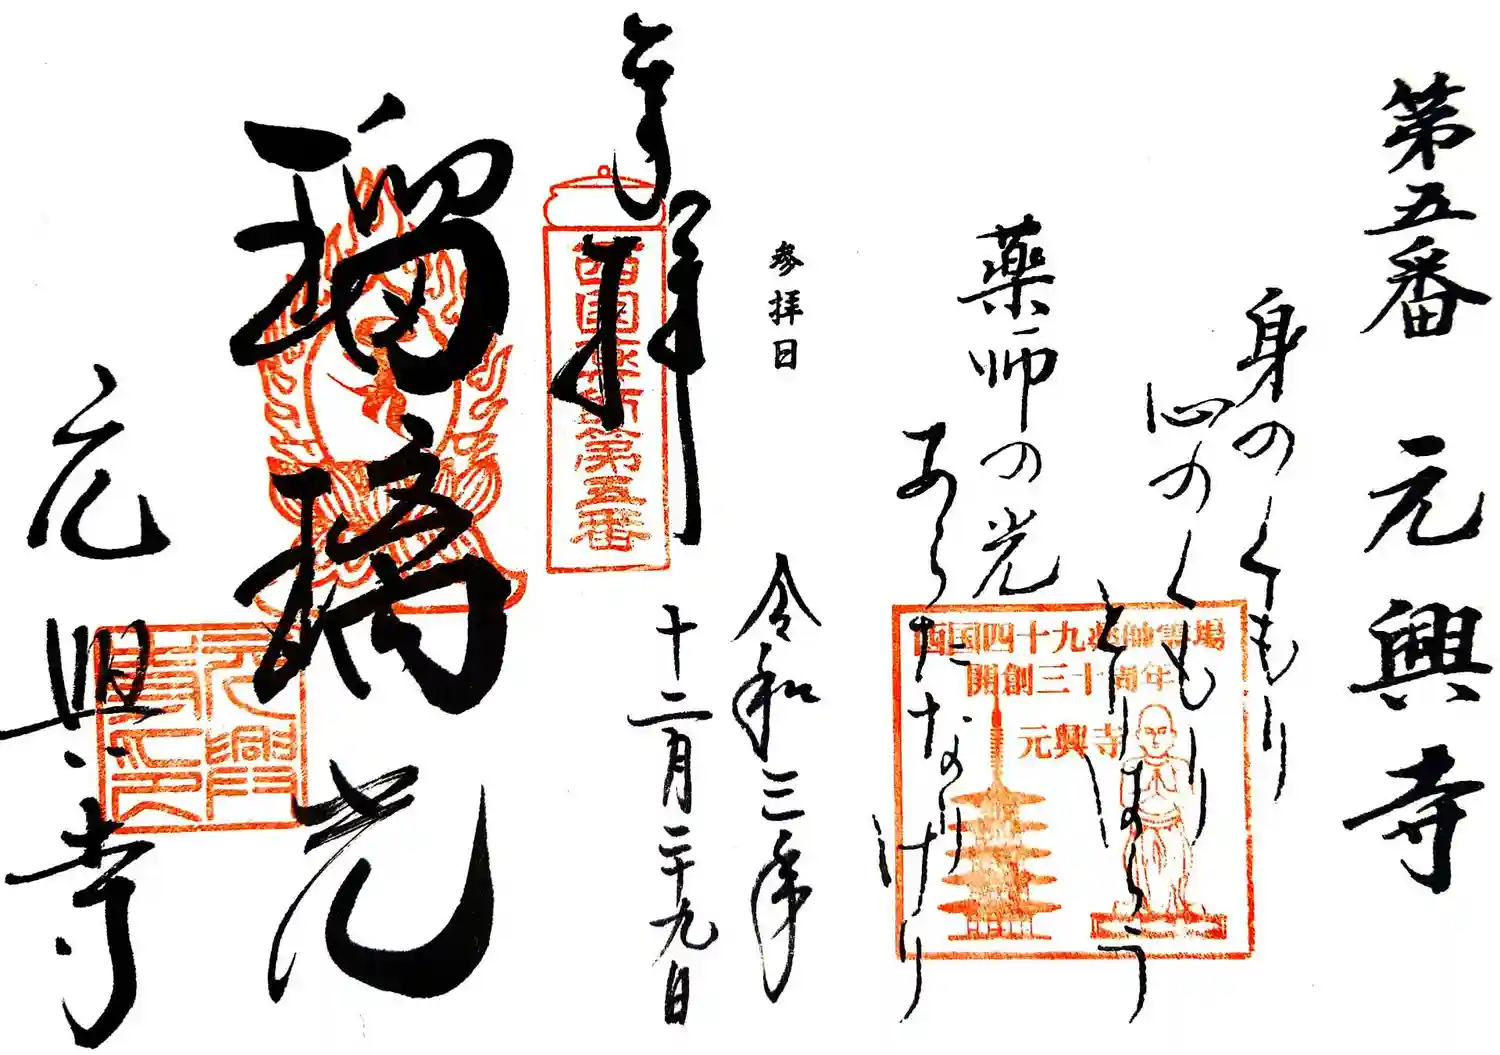 第五番 元興寺
身のくもり
心のくもり
とりはらう
薬師の光
あらたかなりけり
西国四十九薬師霊場
開創三十周年
元興寺
参拝日
令和三年
十二月二十九日
奉拝
西国薬師第五番
瑠璃光
元興寺
元興寺印